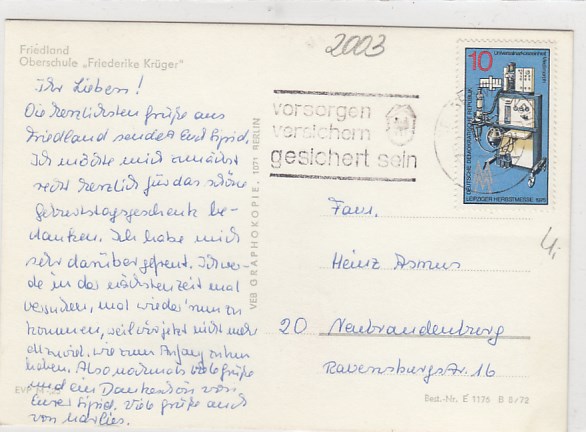 Friedland
Oberschule „Friederike Krüger"
2003
Ihr Lieben!
Die herzlichsten Grüße aus
Friedland sendet Euch Sigrid.
Ich möchte mich zunächst
recht herzlich für das schöne
Geburtstagsgeschenk be-
danken. Ich habe mich
sehr darüber gefreut. Ich wer-
de in der nächsten Zeit mal
versuchen, mal wieder rum zu
kommen, weil wir jetzt nicht mehr
allzuviel, wie zum Anfang zu tun
haben. Also nochmals viele Grüße
und ein Dankeschön von
Eurer Sigrid. Viele Grüße auch
von Marlies.
VEB GRAPHOKOPIE, 1071 BERLIN
vorsorgen
versichern
gesichert sein
10
DEUTSCHE DEMOKRATISCHE REPUBLIK
LEIPZIGER HERBSTMESSE 1975
Fam.
Heinz Asmus
20 Neubrandenburg
Ravensburgstr. 16
Best.-Nr. E 1176 B 8/72